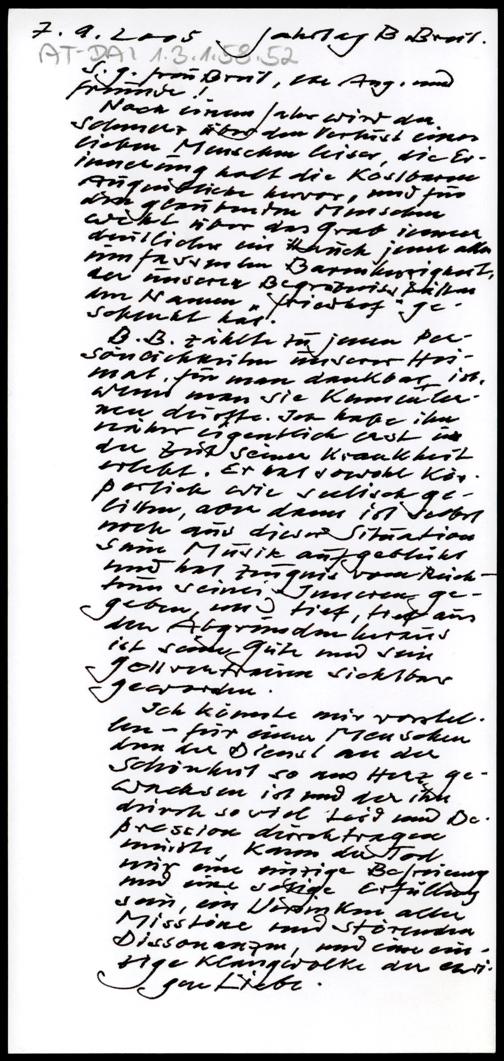 7.9.2005 Jahrtag B. Breit.
AT-DAI 1.3.1.58.52
S.g. Frau Breit, lbe Ang. und
Freunde!
Nach einem Jahr wird der
Schmerz über den Verlust eines
lieben Menschen leiser, die Er-
innerung holt die kostbaren
Augenblicke hervor, und für
den glaubenden Menschen
weht über das Grab immer
deutlicher ein Hauch jener alles
umfassenden Barmherzigkeit,
der unseren Begräbnisstätten
den Namen "Friedhof" ge-
schenkt hat.
B.B. zählte zu jenen Per-
sönlichkeiten unserer Hei-
mat, für man dankbar ist,
wenn man sie kennenler-
nen durfte. Ich habe ihn
näher eigentlich erst in
der Zeit seiner Krankheit
erlebt. Er hat sowohl kör-
perlich wie seelisch ge-
litten, aber dann ist selbst
noch aus dieser Situation
seine Musik aufgeblüht
und hat Zeugnis vom Reich-
tum seines Inneren ge-
geben, und tief, tief aus
den Abgründen heraus
ist seine Güte und sein
Gottvertrauen sichtbar
geworden.
Ich könnte mir vorstel-
len – für einen Menschen
dem der Dienst an der
Schönheit so ans Herz ge-
wachsen ist und der ihn
durch so viel Leid und De-
pression durchtragen
musste, kann der Tod
nur eine einzige Befreiung
und eine selige Erfüllung
sein, ein Versinken aller
Misstöne und störenden
Dissonanzen, und eine ein-
zige Klangwolke der ewi-
gen Liebe.